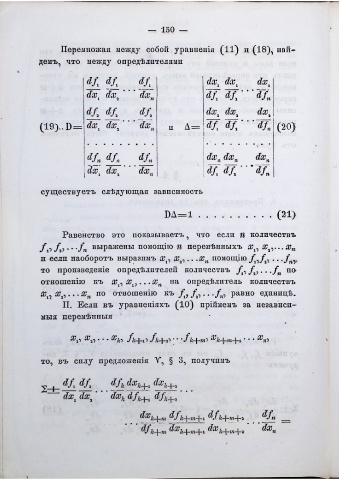 — 150 —
Перемножая между собой уравненія (11) и (18), най-
демъ, что между опредѣлителями
df₁ df₁ df₁ dx₁ dx₁ dx₁
dx₁ dx₂ ··· dxₙ df₁ df₂ ··· dfₙ
df₂ df₂ df₂ dx₂ dx₂ dx₂
(19)..D= dx₁ dx₂ ··· dxₙ и Δ= df₁ df₂ ··· dfₙ (20)
. . . . . . . . . . . . . . . .
dfₙ dfₙ dfₙ dxₙ dxₙ dxₙ
dx₁ dx₂ ··· dxₙ df₁ df₂ ··· dfₙ
существуетъ слѣдующая зависимость
DΔ=1 . . . . . . . . . . (21)
Равенство это показываетъ, что если n количествъ
f₁, f₂, ···fₙ выражены помощію n перемѣнныхъ x₁, x₂, ···xₙ
и если наоборотъ выразимъ x₁, x₂, ···xₙ помощію f₁, f₂, ···fₙ,
то произведеніе опредѣлителей количествъ f₁, f₂, ···fₙ по
отношенію къ x₁, x₂, ···xₙ на опредѣлитель количествъ
x₁, x₂, ···xₙ по отношенію къ f₁, f₂, ···fₙ, равно единицѣ.
II. Если въ уравненіяхъ (10) приймемъ за независи-
мыя перемѣнныя
x₁, x₂, ···xₖ, fₖ₊₁, fₖ₊₂, ···fₖ₊ₘ, xₖ₊ₘ₊₁ ···xₙ,
то, въ силу предложенія V, § 3, получимъ
Σ± df₁ df₂ ··· dfₖ dxₖ₊₁ dxₖ₊₂ ···
dx₁ dx₂ dxₖ dfₖ₊₁ dfₖ₊₂
··· dxₖ₊ₘ dfₖ₊ₘ₊₁ dfₖ₊ₘ₊₂ ··· dfₙ =
dfₖ₊ₘ dxₖ₊ₘ₊₁ dxₖ₊ₘ₊₂ dxₙ